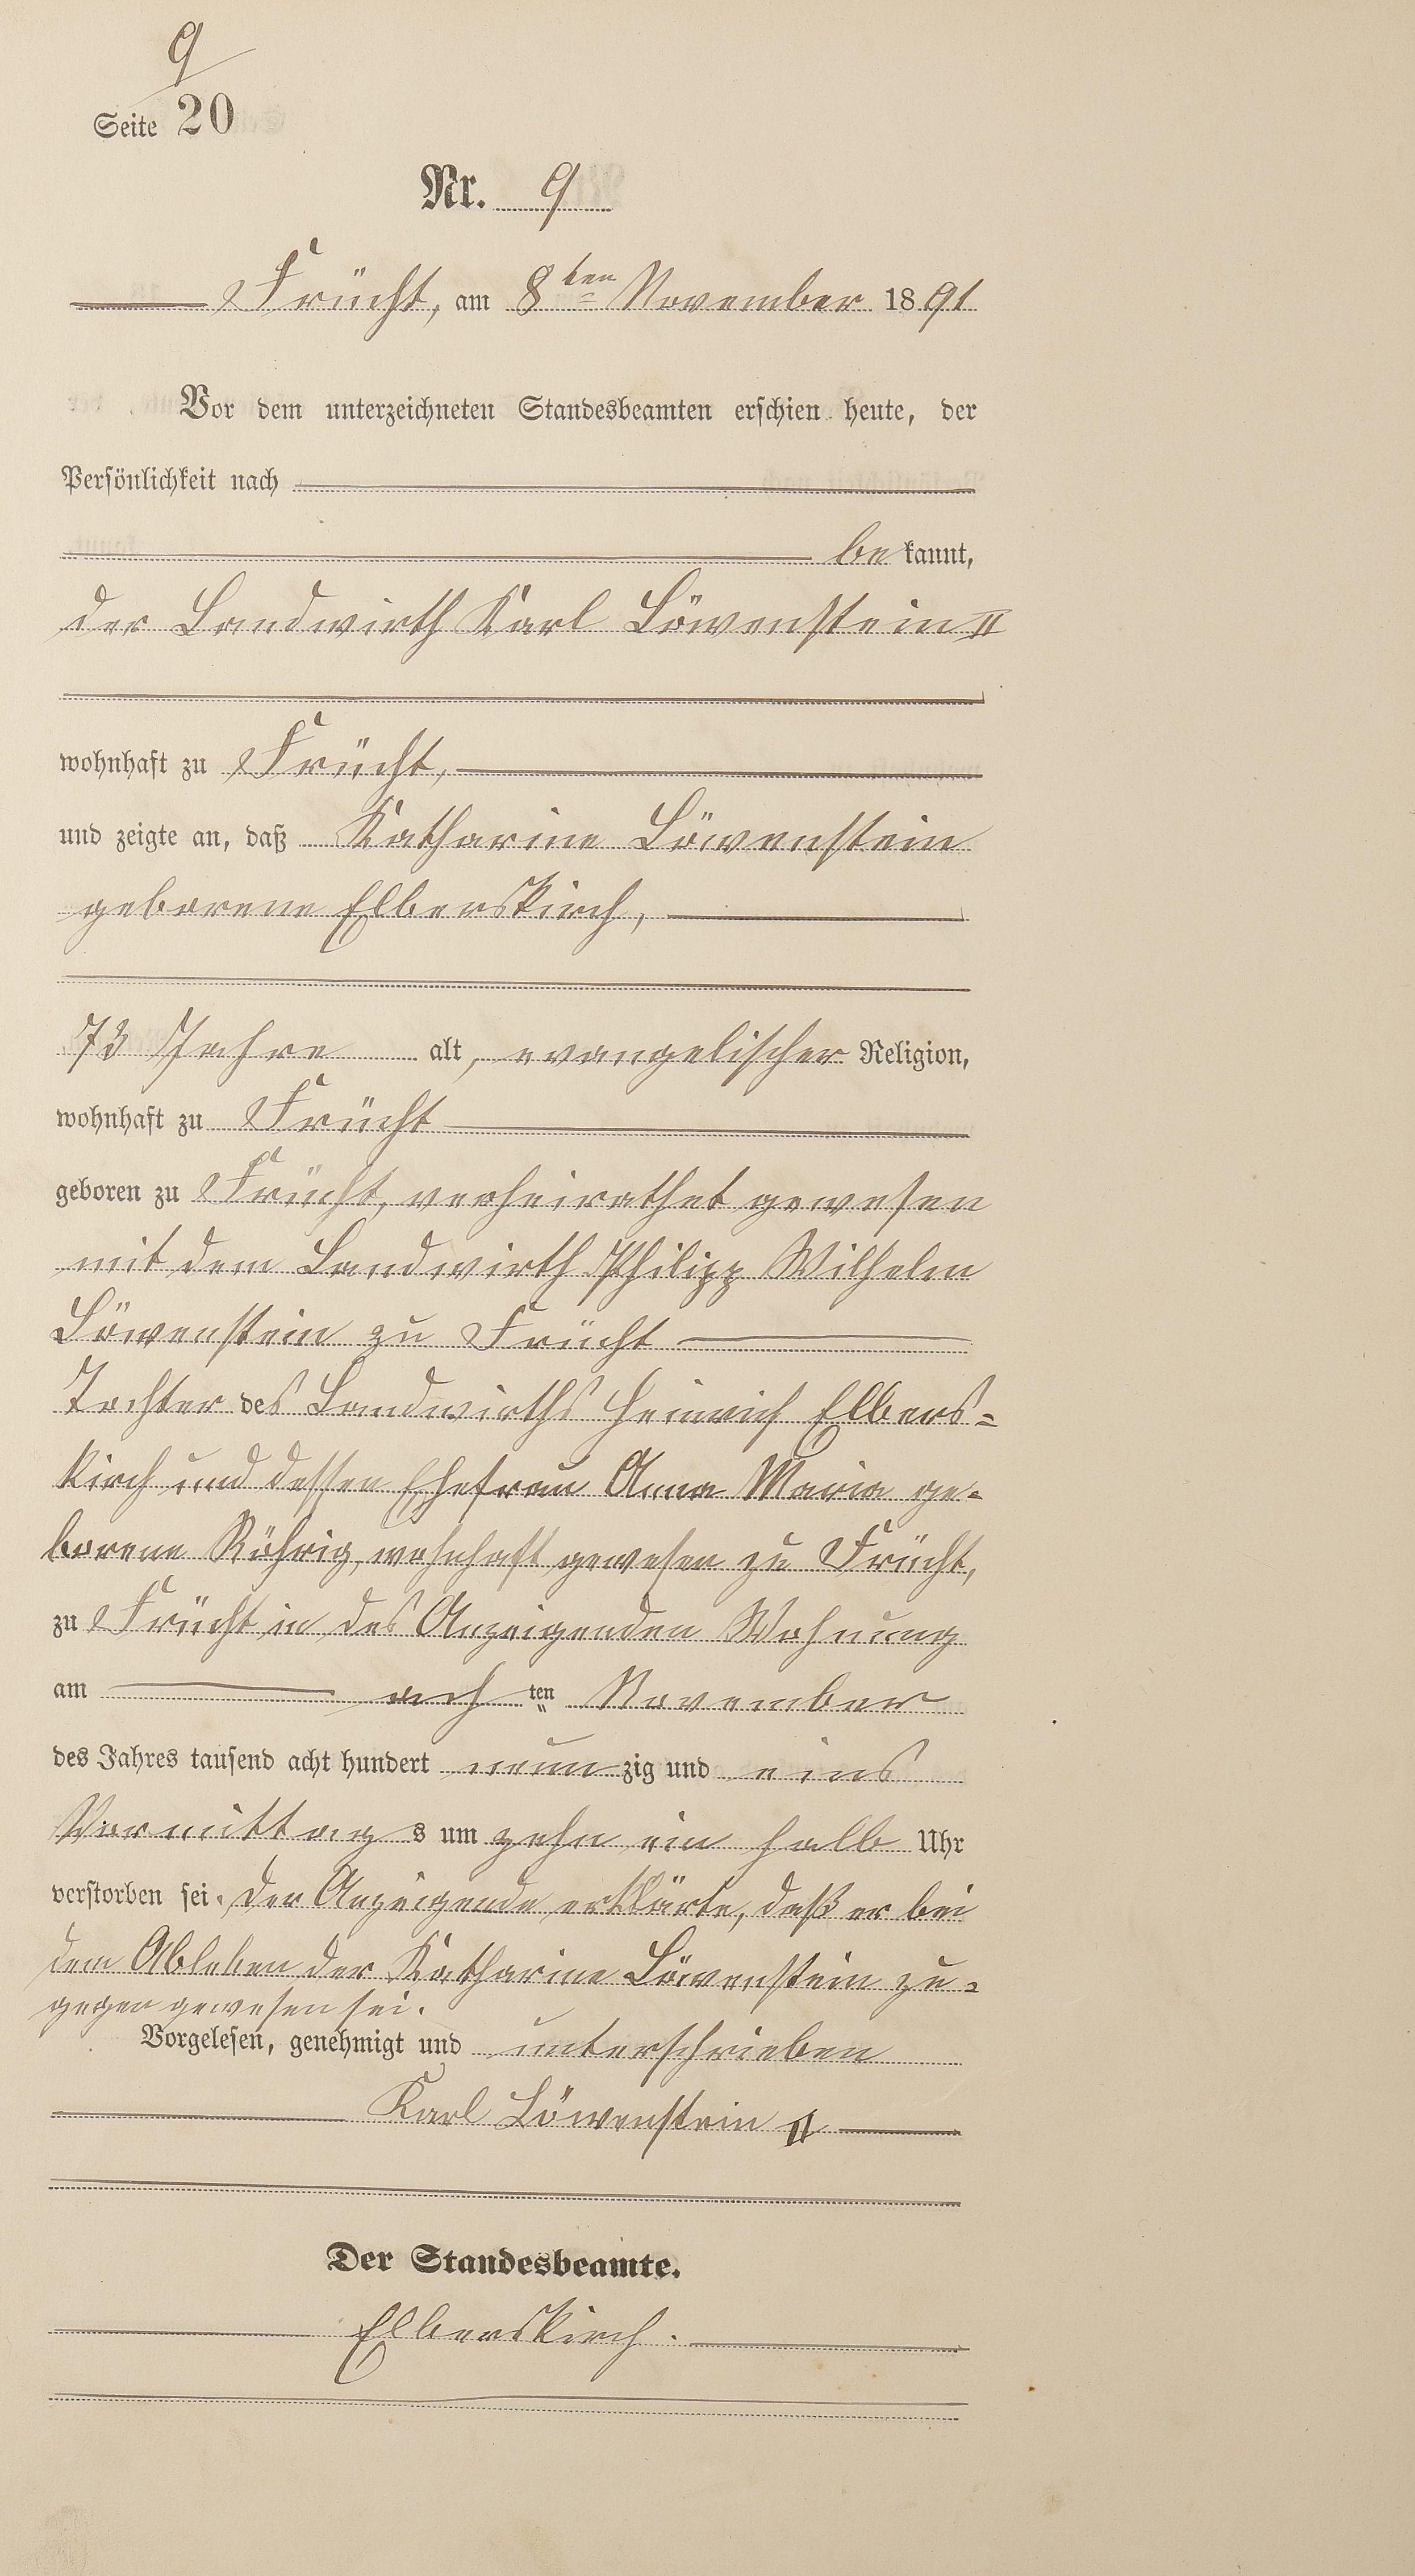 9
Seite 20
Nr. 9
Frücht, am 8ten November 1891
Vor dem unterzeichneten Standesbeamten erschien heute, der
Persönlichkeit nach
bekannt,
der Landwirth Karl Löwenstein II
wohnhaft zu Frücht,
und zeigte an, daß Katharine Löwenstein
geborene Elberskirch,
73 Jahre alt, evangelischer Religion,
wohnhaft zu Frücht
geboren zu Frücht, verheirathet gewesen
mit dem Landwirth Philipp Wilhelm
Löwenstein zu Frücht
Tochter des Landwirths Heinrich Elbers=
kirch und dessen Ehefrau Anna Maria ge=
borene Röhrig, wohnhaft gewesen zu Frücht,
zu Frücht in des Anzeigenden Wohnung
am achten November
des Jahres tausend acht hundert neunzig und eins
Vormittags um zehn ein halb Uhr
verstorben sei. Der Anzeigende erklärte, daß er bei
dem Ableben der Katharine Löwenstein zu=
gegen gewesen sei.
Vorgelesen, genehmigt und unterschrieben
Karl Löwenstein II
Der Standesbeamte.
Elberskirch.